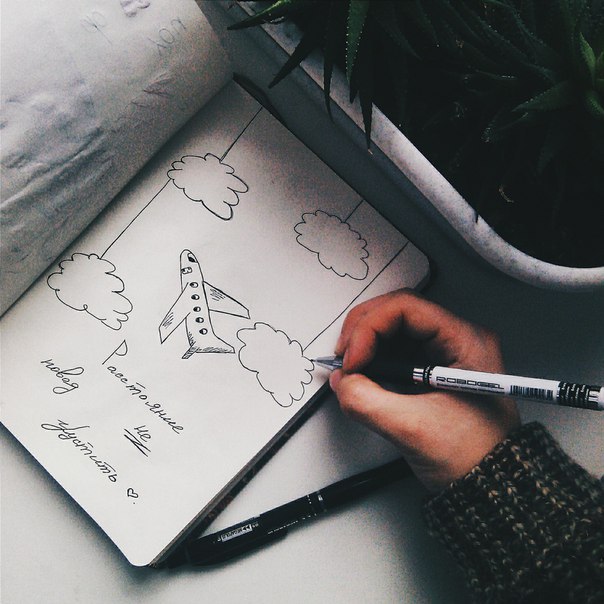 Расстояние
не
повод
грустить
ROBOGEL